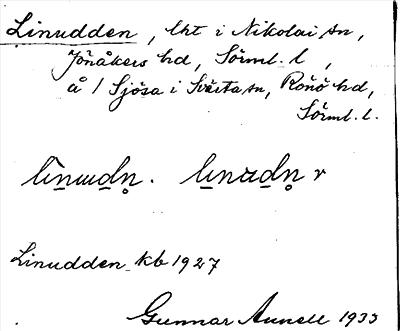 Linudden, lht i Nikolai sn,
Jönåkers hd, Sörml. l,
å / Sjösa i Svärta sn, Rönö hd,
Sörml. l.
Linudden kb 1927
Gunnar Aunell 1933